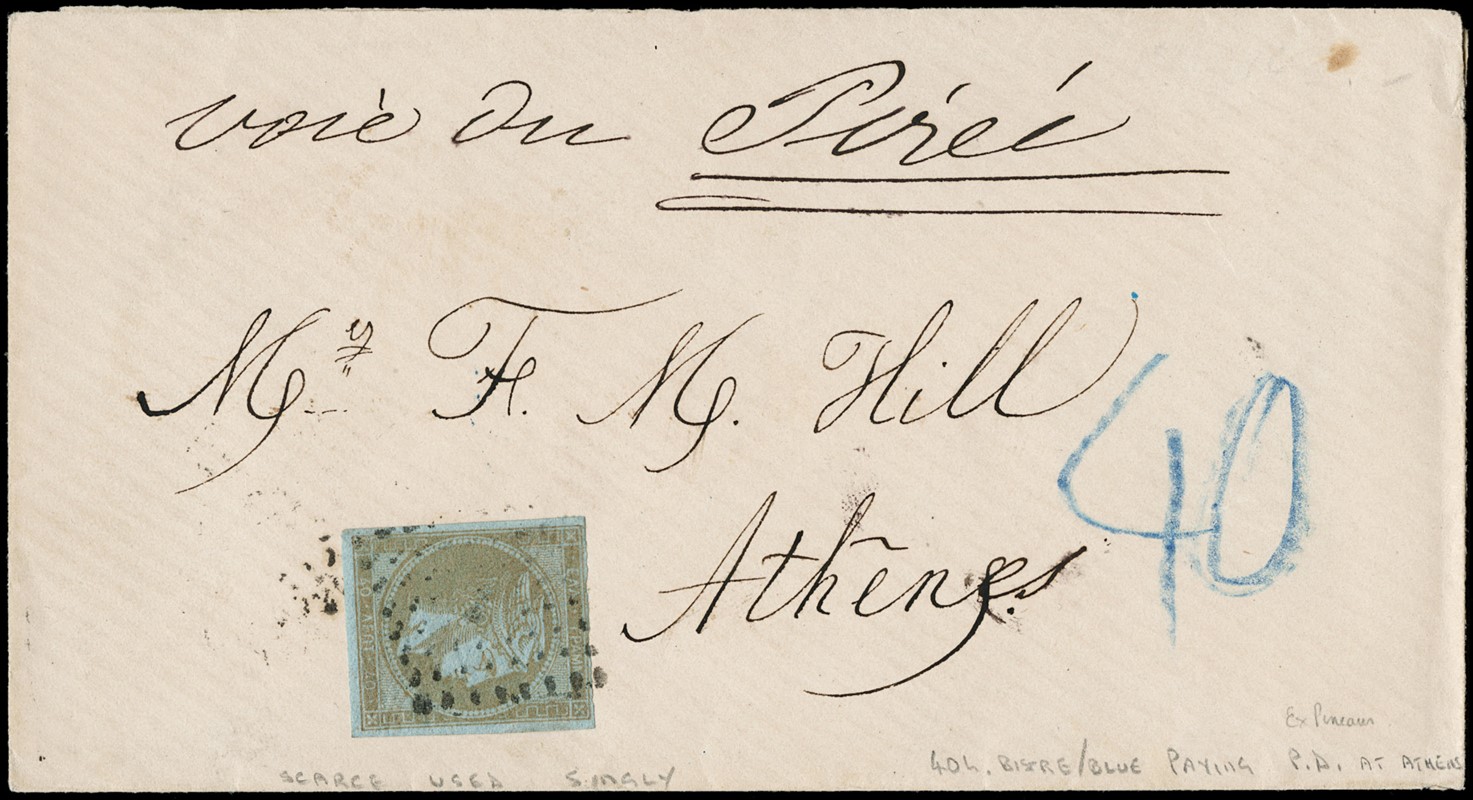 voie du Pirée
Mrs F. M. Hill
Athènes
40
Ex Pineau
SCARCE USED SINGLY
40L. BISTRE/BLUE PAYING P.D. AT ATHENS